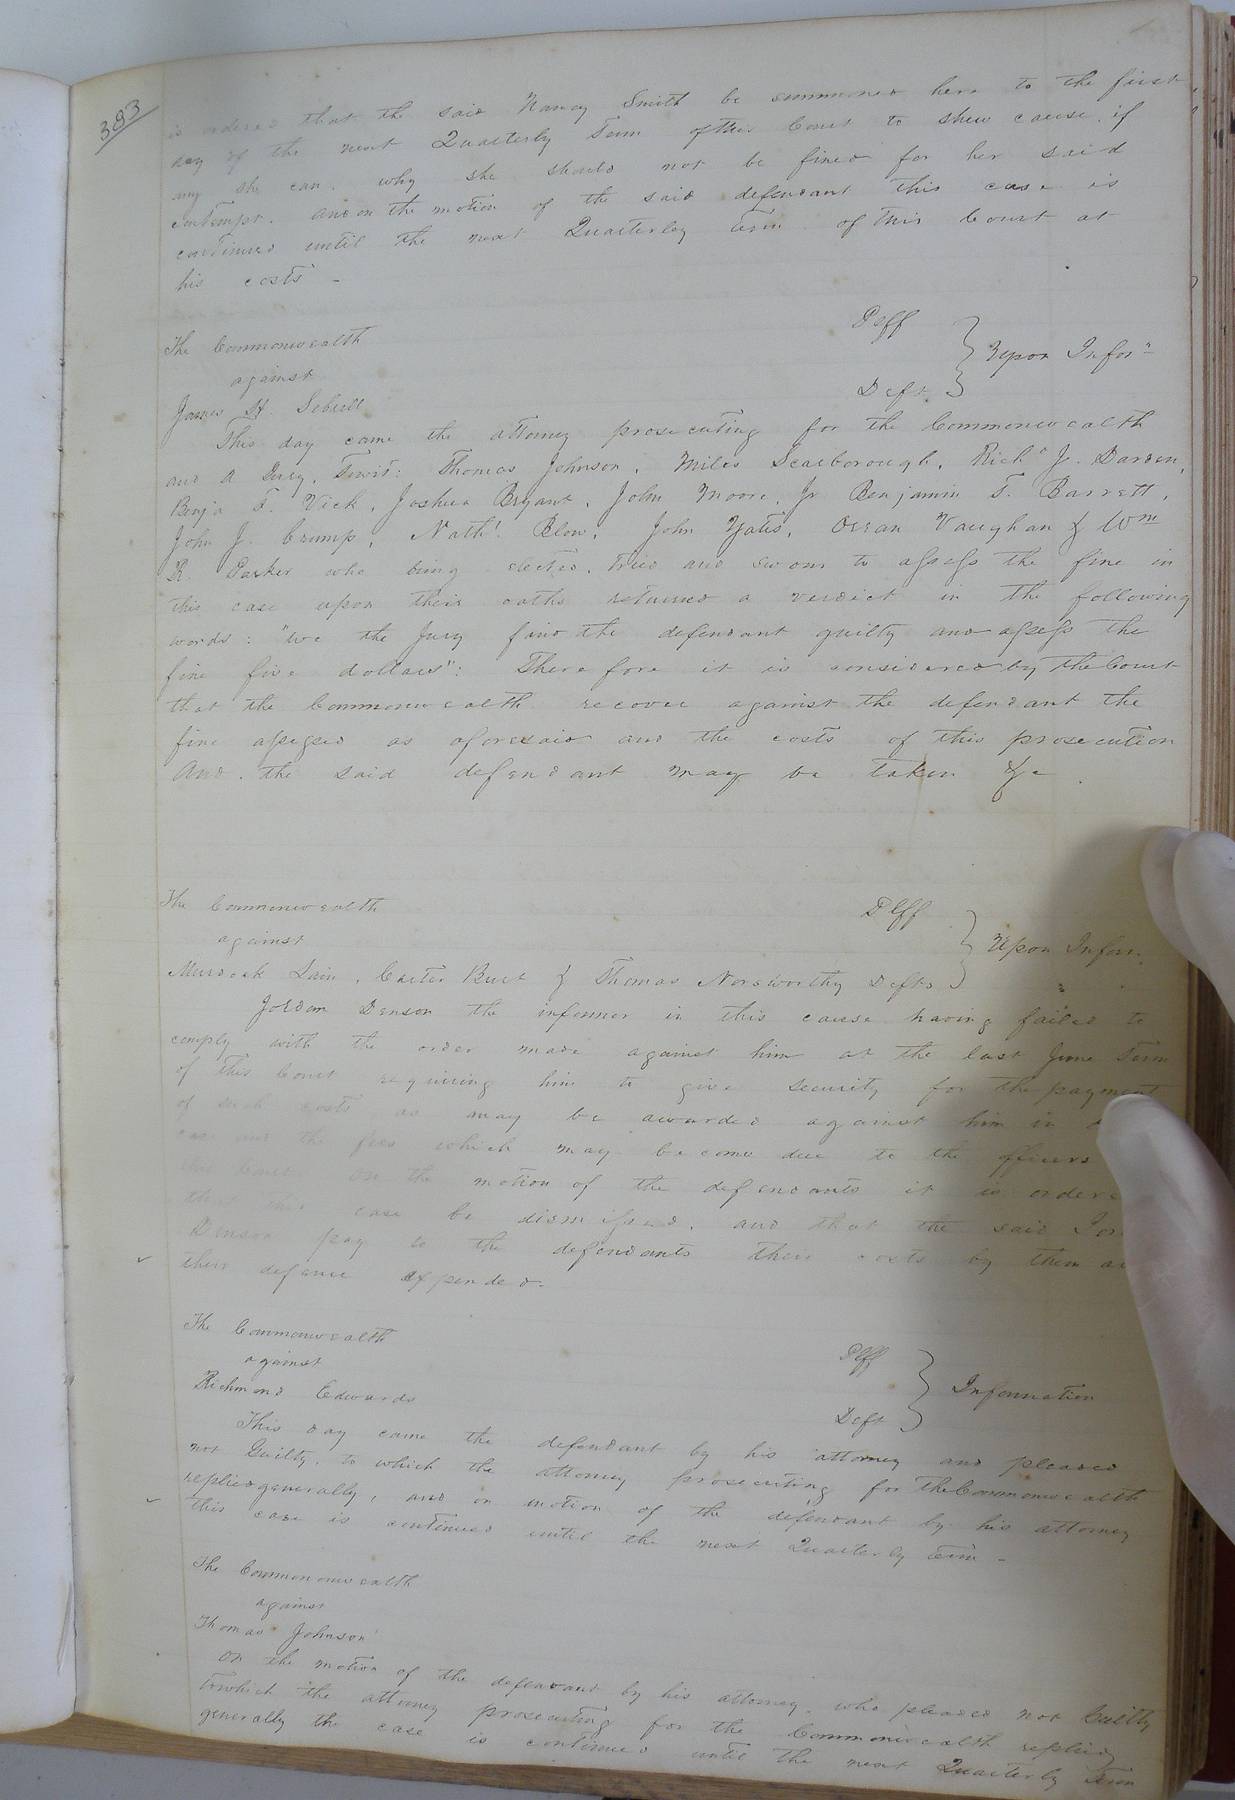 383
is ordered that the said Nancy Smith be summoned here to the first
day of the next Quarterly Term of this Court to shew cause, if
any she can, why she should not be fined for her said
contempt. And on the motion of the said defendant this case is
continued until the next Quarterley term of this Court at
his costs -
The Commonwealth Plff
against } Upon Infor n
James H. Sebrell Deft.
This day came the attorney prosecuting for the Commonwealth
and a Jury, Towit: Thomas Johnson, Miles Scarborough, Richd J. Darden,
Benja F. Vick, Joshua Bryant, John Moore, Jr Benjamin T. Barrett,
John J. Crump, Nathl. Blow, John Yates, Orran Vaughan & Wm
R. Parker who being elected, tried and sworn to assess the fine in
this case upon their oaths returned a verdict in the following
words: "We the Jury find the defendant guilty and assess the
fine five dollars": Therefore it is considered by the Court
that the Commonwealth recover against the defendant the
fine assessed as aforesaid and the costs of this prosecution
And. the said defendant may be taken &c.
The Commonwealth Plff
against } Upon Infor.
Murdock Lain, Carter Burt & Thomas Norsworthy Defts
Jordan Denson the informer in this cause having failed to
comply with the order made against him at the last June Term
of this Court requiring him to give security for the payment
of such costs as may be awarded against him in
case and the fees which may become due to the officers
this Court on the motion of the defendants it is ordere
that this case be dismissed, and that the said Jor
Denson pay to the defendants their costs by them
their defence expended.
The Commonwealth Plff
against } Information
Richmond Edwards Deft
This day came the defendant by his attorney and pleaded
not Guilty, to which the attorney prosecuting for the Commonwealth
replied generally, and on motion of the defendant by his attorney
this case is continued until the next Quarterly term -
The Commonwealth
against
Thomas Johnson
On the motion of the defendant by his attorney, who pleaded not Guilty
to which the attorney prosecuting for the Commonwealth replied
generally the case is continued until the next Quarterly Term